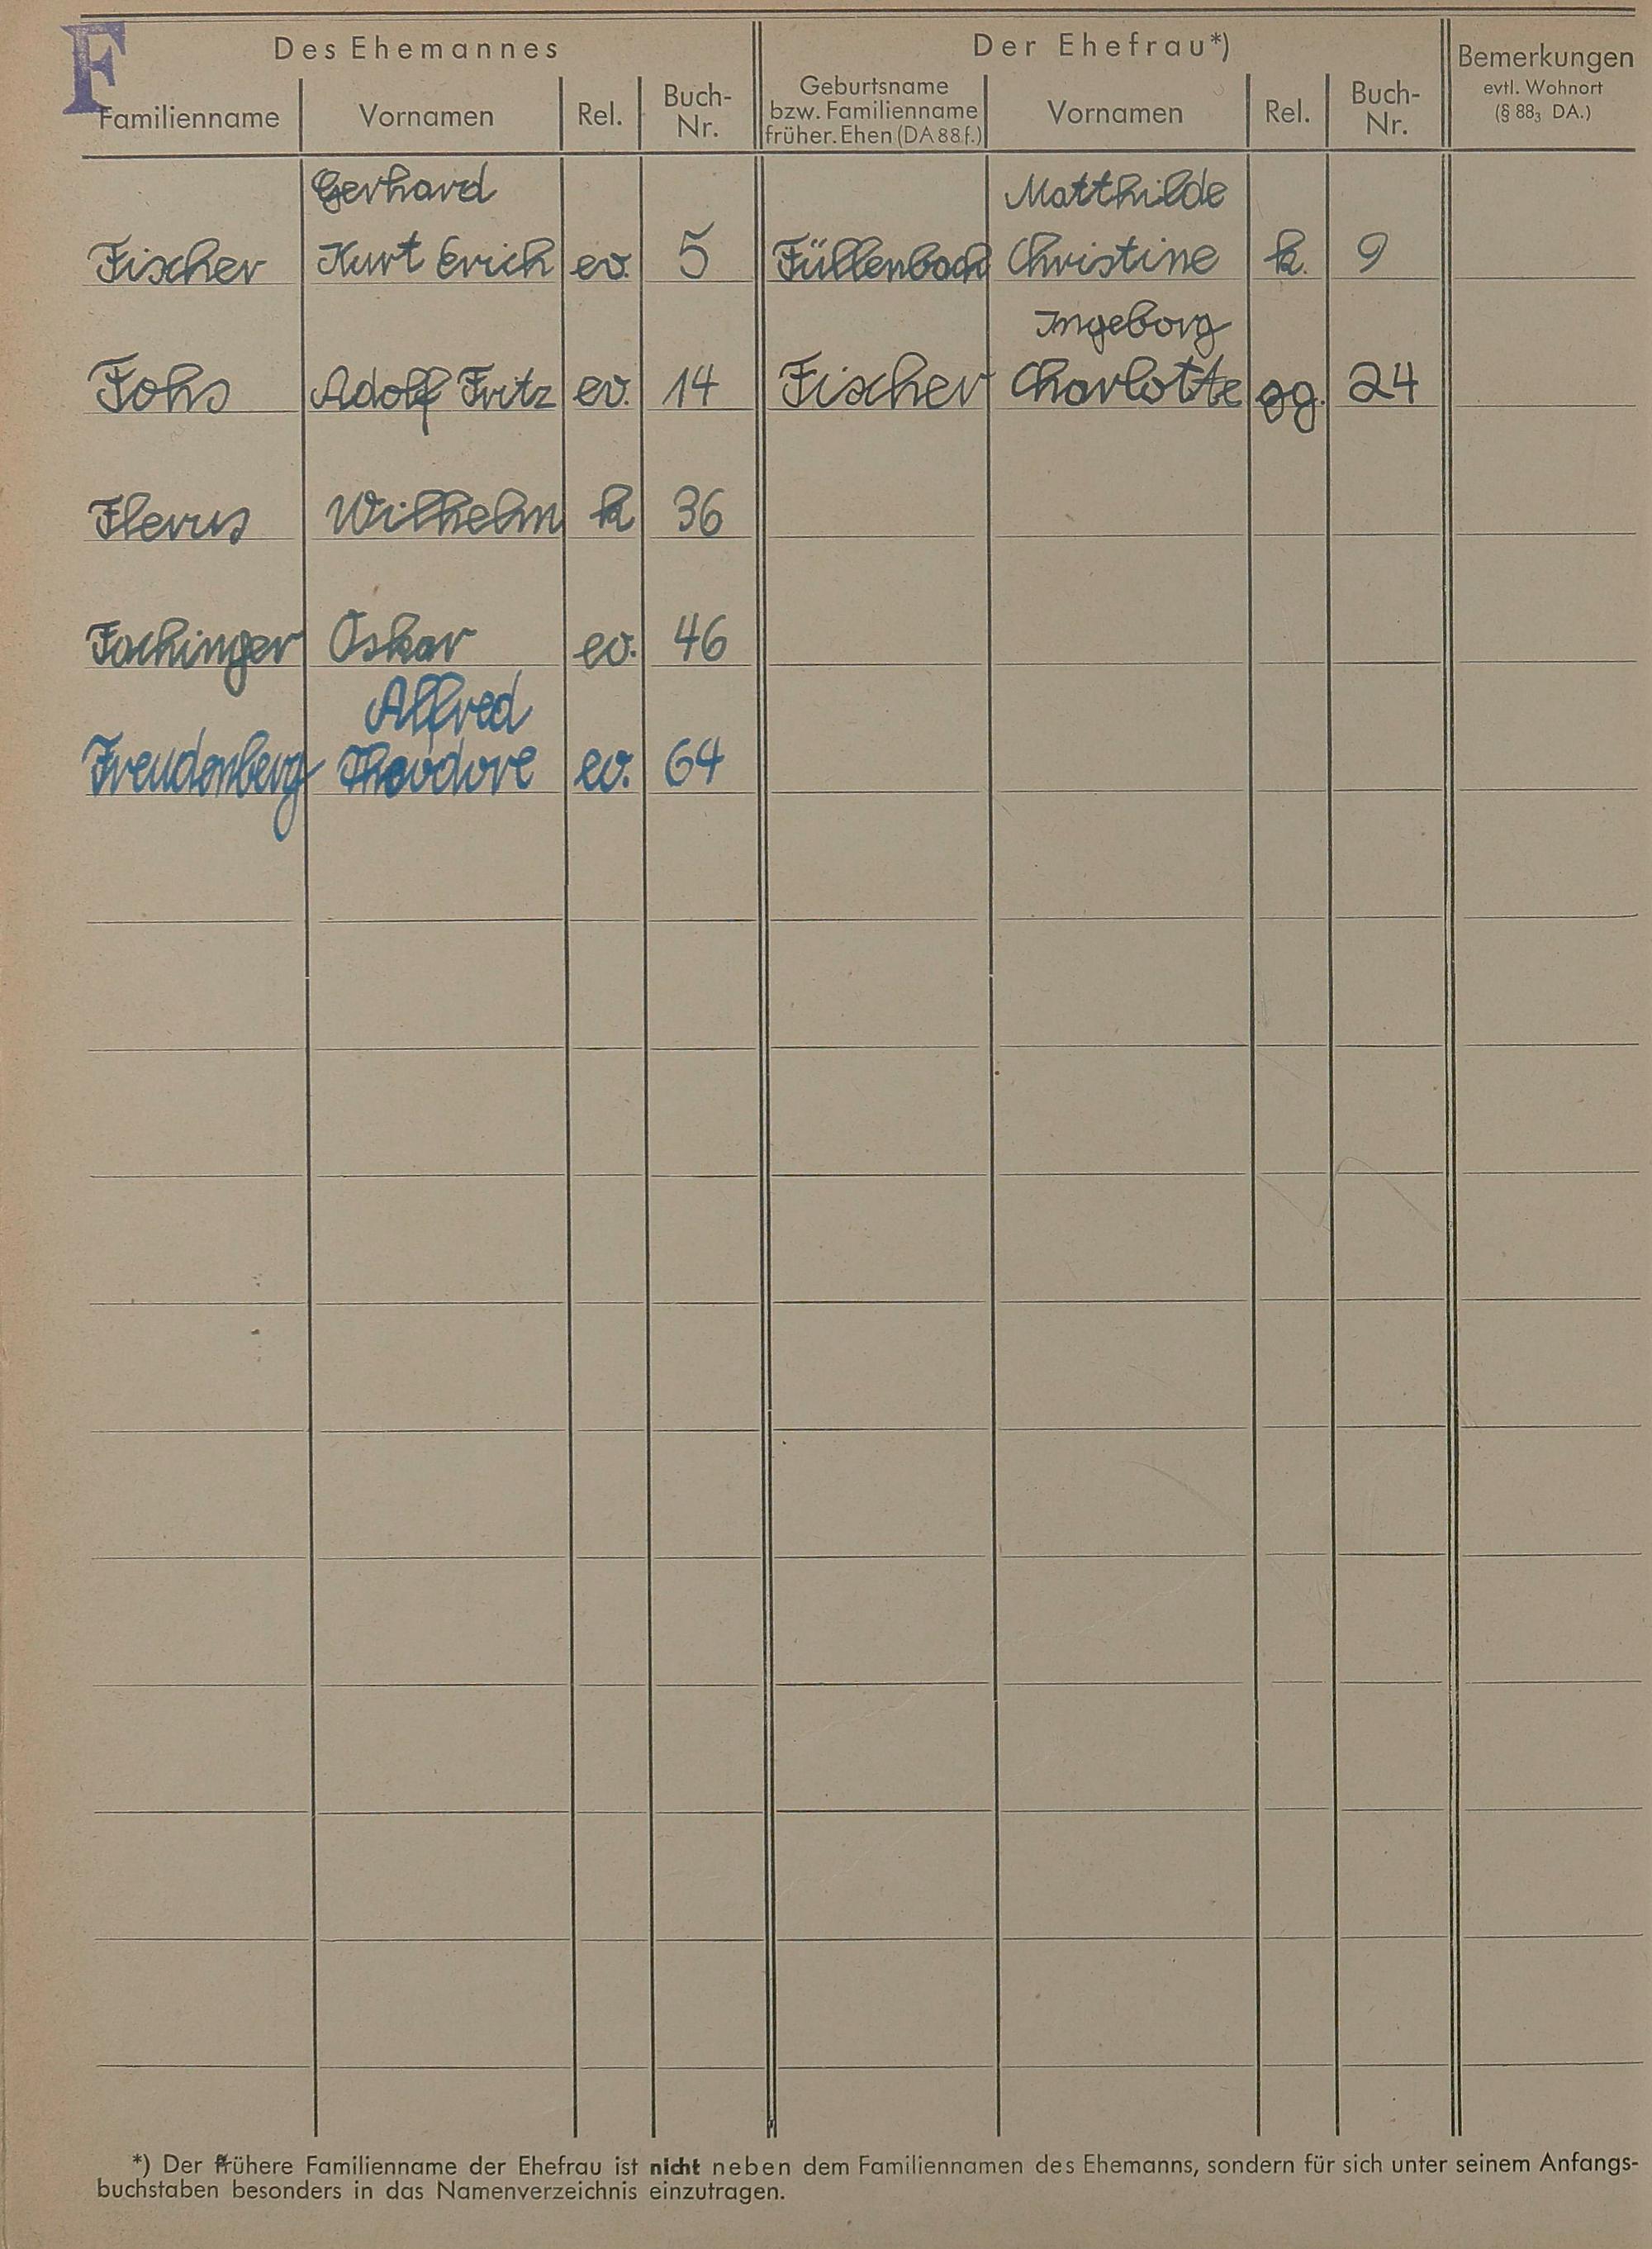 F
Des Ehemannes
Der Ehefrau*)
Bemerkungen
evtl. Wohnort
(§ 88₃ DA.)
Familienname
Vornamen
Rel.
Buch-
Nr.
Geburtsname
bzw. Familienname
früher. Ehen (DA 88 f.)
Vornamen
Rel.
Buch-
Nr.
Gerhard Matthilde
Fischer Kurt Erich ev. 5 Füllenbach Christine k. 9
Ingeborg
Fohs Adolf Fritz ev. 14 Fischer Charlotte gg. 24
Flerus Wilhelm k 36
Fachinger Oskar ev. 46
Alfred
Freudenberg Theodore ev. 64
*) Der frühere Familienname der Ehefrau ist nicht neben dem Familiennamen des Ehemanns, sondern für sich unter seinem Anfangs-
buchstaben besonders in das Namenverzeichnis einzutragen.